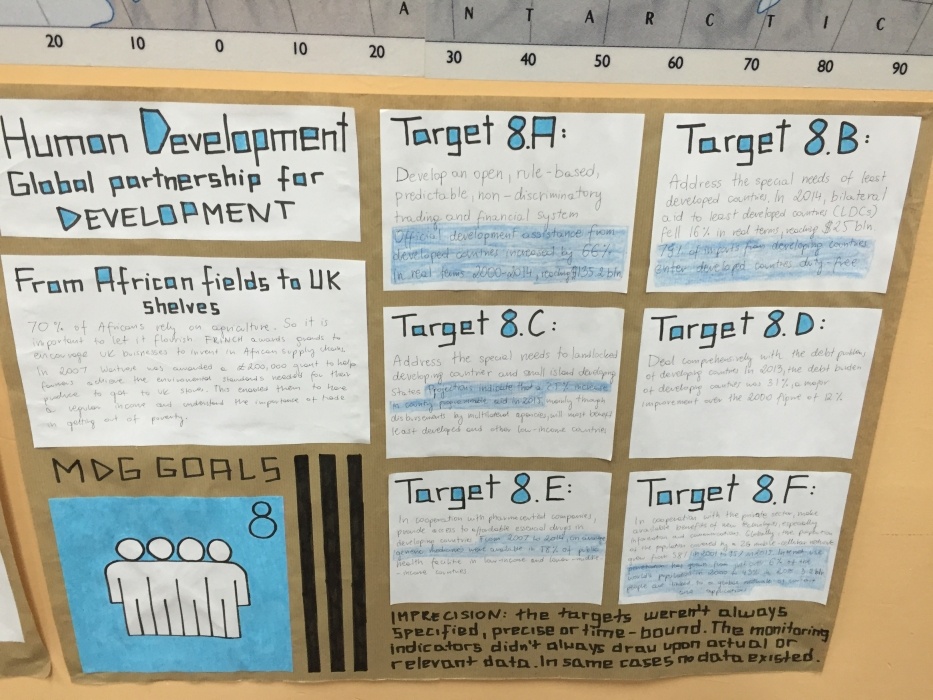 A N T A R C T I C
20 10 0 10 20 30 40 50 60 70 80 90
Human Development
Global partnership for
DEVELOPMENT
From African fields to UK
shelves
70% of Africans rely on agriculture. So it is
important to let it flourish FRINCH awards grands to
encourage UK businesses to invent in African supply chains.
In 2007 Waitrose was awarded a £200,000 grant to help
farmers achieve the environmental standards needed for their
produce to get to UK stores. This enabled them to have
a regular income and understand the importance of trade
on getting out of poverty.
MDG GOALS
8
Target 8.A:
Develop an open, rule-based,
predictable, non-discriminatory
trading and financial system
Official development assistance from
developed countries increased by 66%
in real terms 2000-2014, reaching $135.2 bln
Target 8.B:
Address the special needs of least
developed countries. In 2014, bilateral
aid to least developed countries (LDCs)
fell 16% in real terms, reaching $25 bln
79% of imports from developing countries
enter developed countries duty-free
Target 8.C:
Address the special needs to landlocked
developing countries and small island developing
States Projections indicate that a 2.5% increase
in country programmable aid in 2015 mainly through
disbursements by multilateral agencies, will most benefit
least developed and other low-income countries
Target 8.D:
Deal comprehensively with the debt problems
of developing countries In 2013, the debt burden
of developing countries was 3.1%, a major
improvement over the 2000 figure of 12%
Target 8.E:
In cooperation with pharmaceutical companies,
provide access to affordable essential drugs in
developing countries From 2007 to 2014, on average
generic medicines were available in 58% of public
health facilities in low-income and lower-middle
-income countries
Target 8.F:
In cooperation with the private sector, make
available benefits of new technologies, especially
information and communications Globally, the proportion
of the population covered by a 2G mobile-cellular network
grew from 58% in 2001 to 95% in 2015. Internet use
penetration has grown from just over 6% of the
world's population in 2000 to 43% in 2015. 3.2 bln
people are linked to a global network of content
and applications
IMPRECISION: the targets weren't always
specified, precise or time-bound. The monitoring
indicators didn't always draw upon actual or
relevant data. In same cases no data existed.